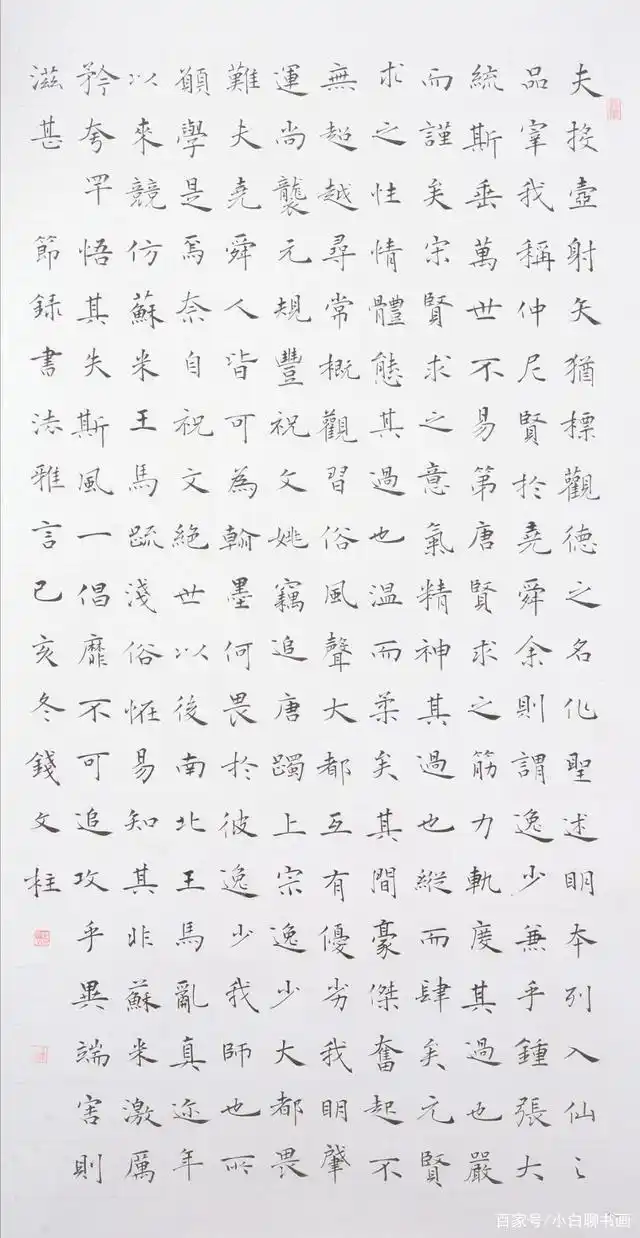 夫投壺射矢猶標觀德之名作聖述明本列入仙之
品宰我稱仲尼賢於堯舜余則謂逸少兼乎鍾張大
統斯垂萬世不易第唐賢求之筋力軌度其過也嚴
而謹矣宋賢求之意氣精神其過也縱而肆矣元賢
求之性情體態其過也温而柔矣其間豪傑奮起不
無超越尋常概觀習俗風聲大都互有優劣我明肇
運尚襲元規豐祝文姚竊追唐躅上宗逸少大都畏
難夫堯舜人皆可為翰墨何畏於彼逸少我師也所
願學是焉奈自祝文絶世以後南北王馬亂真迩年
以來競仿蘇米王馬疏淺俗怪易知其非蘇米激厲
矜夸罕悟其失斯風一倡靡不可追攻乎異端害則
滋甚 節録書法雅言己亥冬錢文柱
百家号/小白聊书画